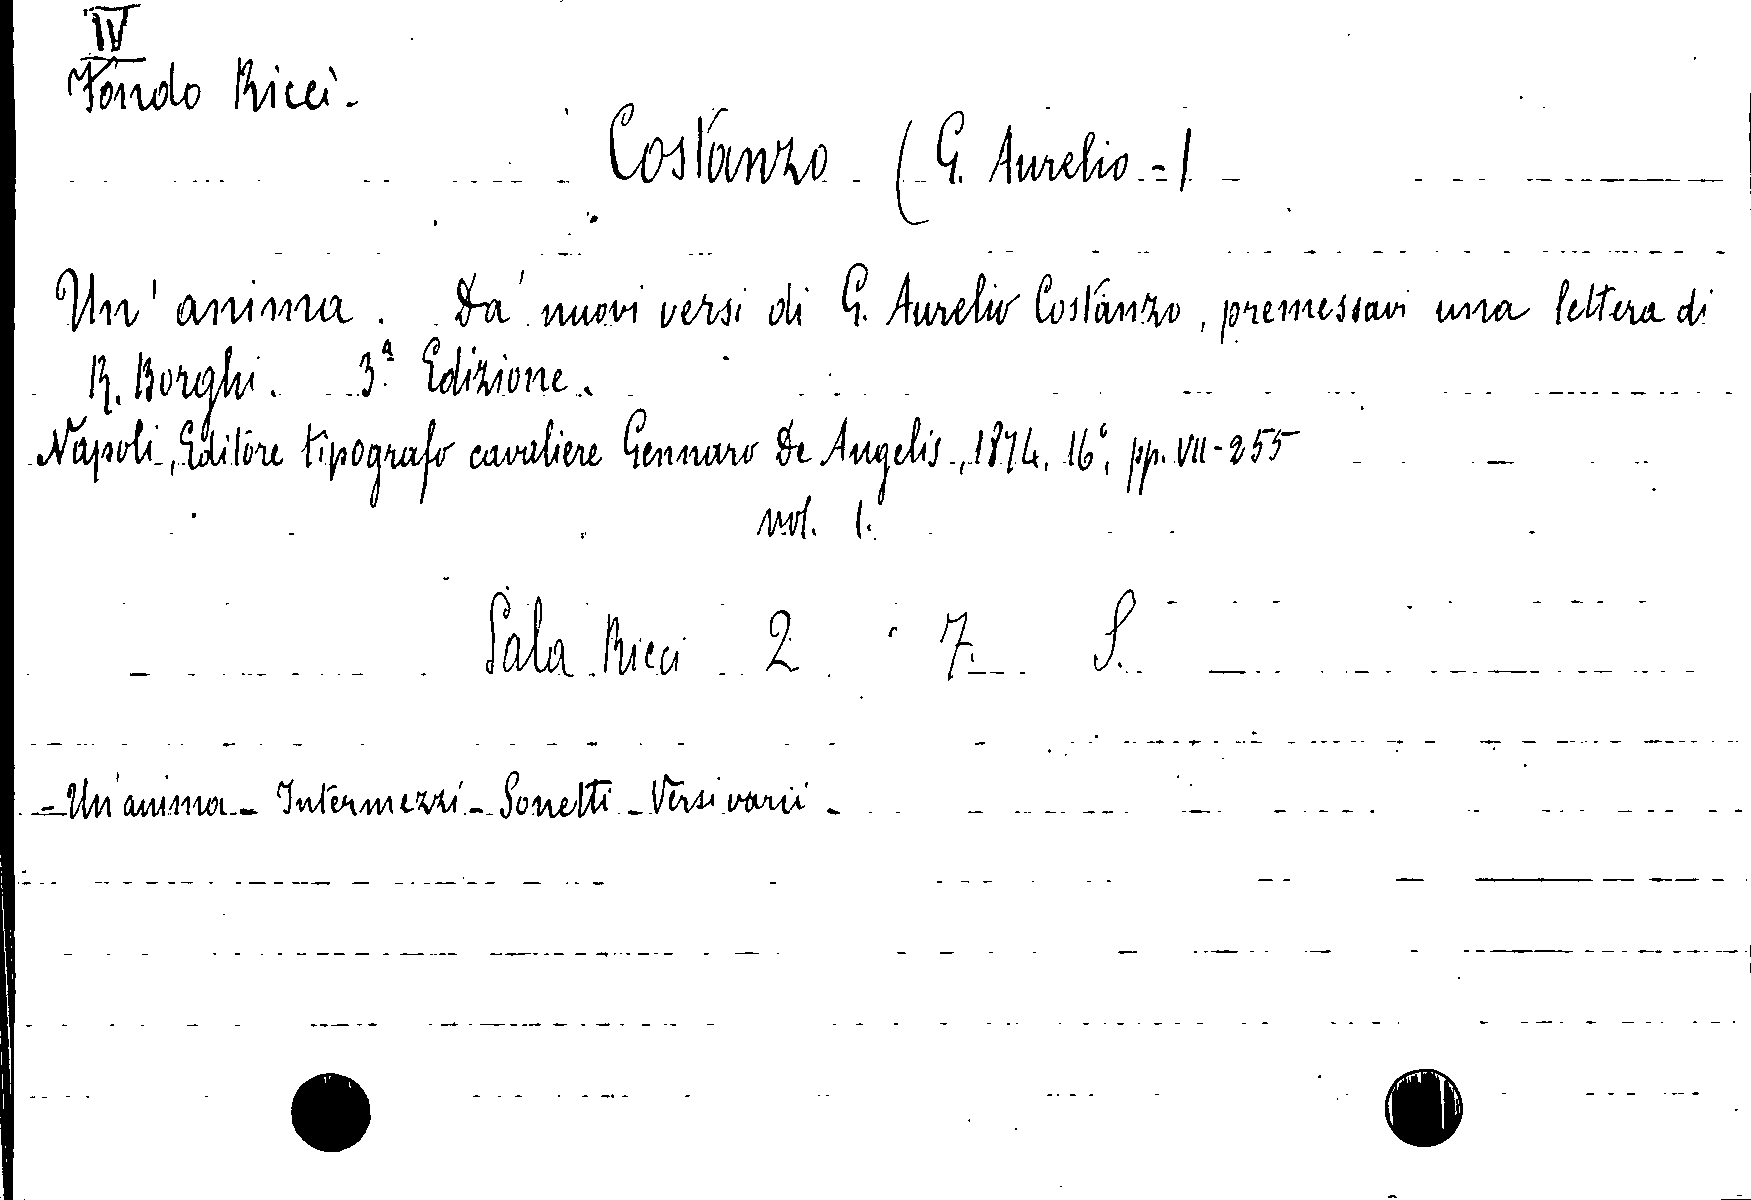 IV
Fondo Ricci.
Costanzo (G. Aurelio -)
Un' anima. Da' nuovi versi di G. Aurelio Costanzo, premessavi una lettera di
R. Borghi. 3ª Edizione.
Napoli, Editore tipografo cavaliere Gennaro De Angelis, 1874, 16°, pp. VII-255
vol. 1.
Sala Ricci 2 7. S.
- Un'anima - Intermezzi - Sonetti - Versi varii -